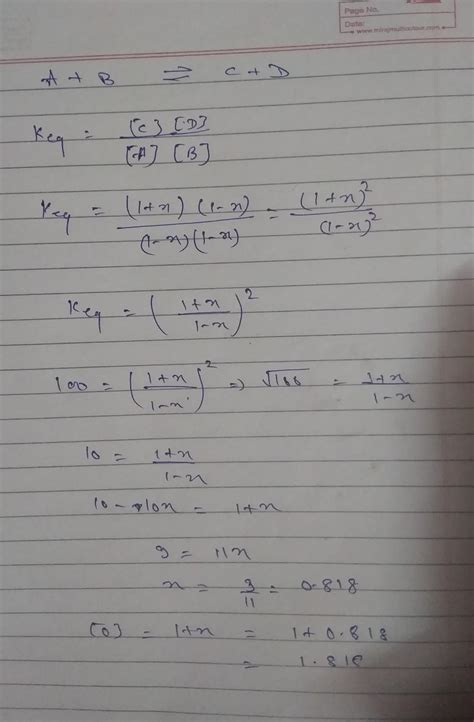 Page No.
Date:
A + B ⇌ C + D
Keq = [C] [D] / [A] [B]
Keq = (1+x) (1-x) / (1-x) (1-x) = (1+x)² / (1-x)²
Keq = (1+x / 1-x)²
100 = (1+x / 1-x)² ⇒ √100 = 1+x / 1-x
10 = 1+x / 1-x
10 - 10x = 1+x
9 = 11x
x = 9/11 = 0.818
[D] = 1+x = 1+0.818
= 1.818